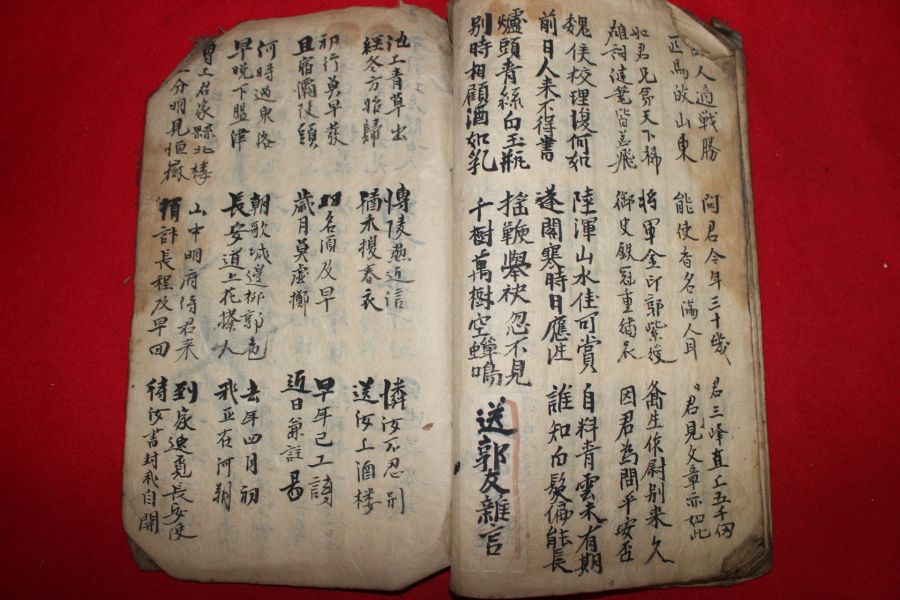 故人適戰勝
匹馬皈山東
問君今年三十幾
能使香名滿人耳
君三峰直上五千仞
君見文章亦如此
如君兄弟天下稀
雄詞健筆皆若飛
將軍金印郭紫綬
御史鉄冠重繡衣
喬生作尉別來久
因君為問平安否
魏侯校理復何如
前日人来不得書
陸渾山水佳可賞
蓬閣寒時日應往
自料青雲未有期
誰知白髮偏能長
爐頭青絲白玉瓶
別時相顧酒如乳
搖鞭舉袂忽不見
千樹萬樹空蟬鳴
送郭友雜言
池上青草出
經冬方始歸
博陵無近信
猶未換春衣
憐汝不忍別
送汝上酒樓
初行莫早發
且宿灞陵頭
功名須及早
歲月莫虛擲
早年已工詩
近日兼註易
何時過東洛
早晚下盟津
朝歌城邊柳郭地
長安道上花撲人
去年四月初
我正在河朔
曾上君家縣北樓
上分明見恒嶽
山中明府待君来
須計長程及早回
到家速覓長安使
待汝書封我自開